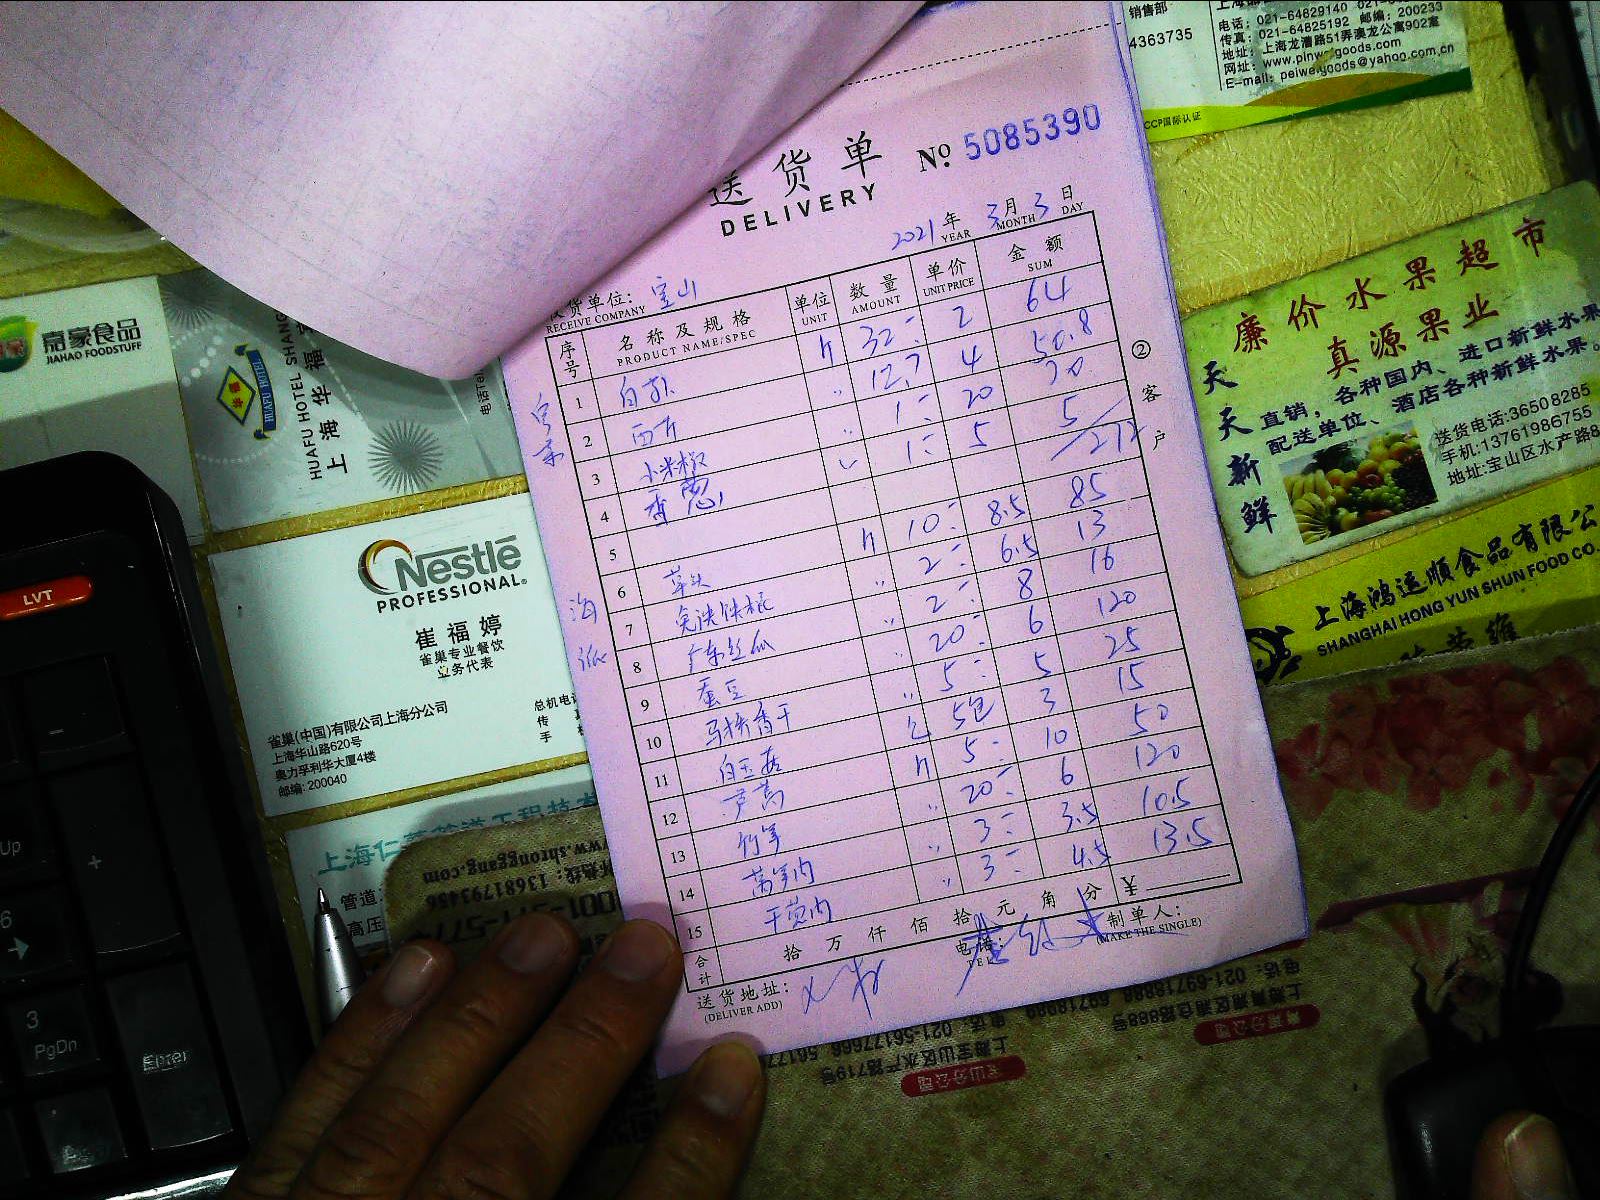 送货单
DELIVERY
No 5085390
2021年 3月 3日
YEAR MONTH DAY
收货单位: 宝山
RECEIVE COMPANY
序号 名称及规格 单位 数量 单价 金额
PRODUCT NAME/SPEC UNIT AMOUNT UNIT PRICE SUM
1 32 2 64
2 西芹 12.7 4 50.8
3 小米椒 1 20 20
4 香葱 1 5 5
5
6 草头 10 8.5 85
7 2 6.5 13
8 广东丝瓜 2 8 16
9 蚕豆 20 6 120
10 马桥香干 5 5 25
11 白玉菇 5包 3 15
12 芦蒿 5 10 50
13 竹笋 20 6 120
14 莴笋肉 3 3.5 10.5
15 茭肉 3 4.5 13.5
合计 拾 万 仟 佰 拾 元 角 分 ¥
送货地址:
(DELIVER ADD)
电话:
TEL
制单人:
(MAKE THE SINGLE)
②客户
销售部
4363735
电话: 021-64829140
传真: 021-64825192 邮编: 200233
地址: 上海龙漕路51弄澳龙公寓902室
E-mail: peiweigoods@yahoo.com.cn
CCP国际认证
廉价水果超市
真源果业
天天新鲜
直销, 各种国内、进口新鲜水果
配送单位、酒店各种新鲜水果。
送货电话:36508285
手机:13761986755
地址:宝山区水产路8
上海鸿运顺食品有限公
SHANGHAI HONG YUN SHUN FOOD CO.
嘉豪食品
JIAHAO FOODSTUFF
HUAFU HOTEL
HUAFU HOTEL SHANG
上海华福
Nestlé
PROFESSIONAL.
崔福婷
雀巢专业餐饮
业务代表
雀巢(中国)有限公司上海分公司
上海华山路620号
奥力孚利华大厦4楼
邮编: 200040
总机电
传
手
管道
高压
www.shronggang.com
13681793456
电话: 021-69718888
上海青浦区清仓路888号
青浦分公司
电话: 021-56177666
上海宝山区水产路719号
宝山分公司
LVT
Up
+
-
6
3
PgDn
Enter